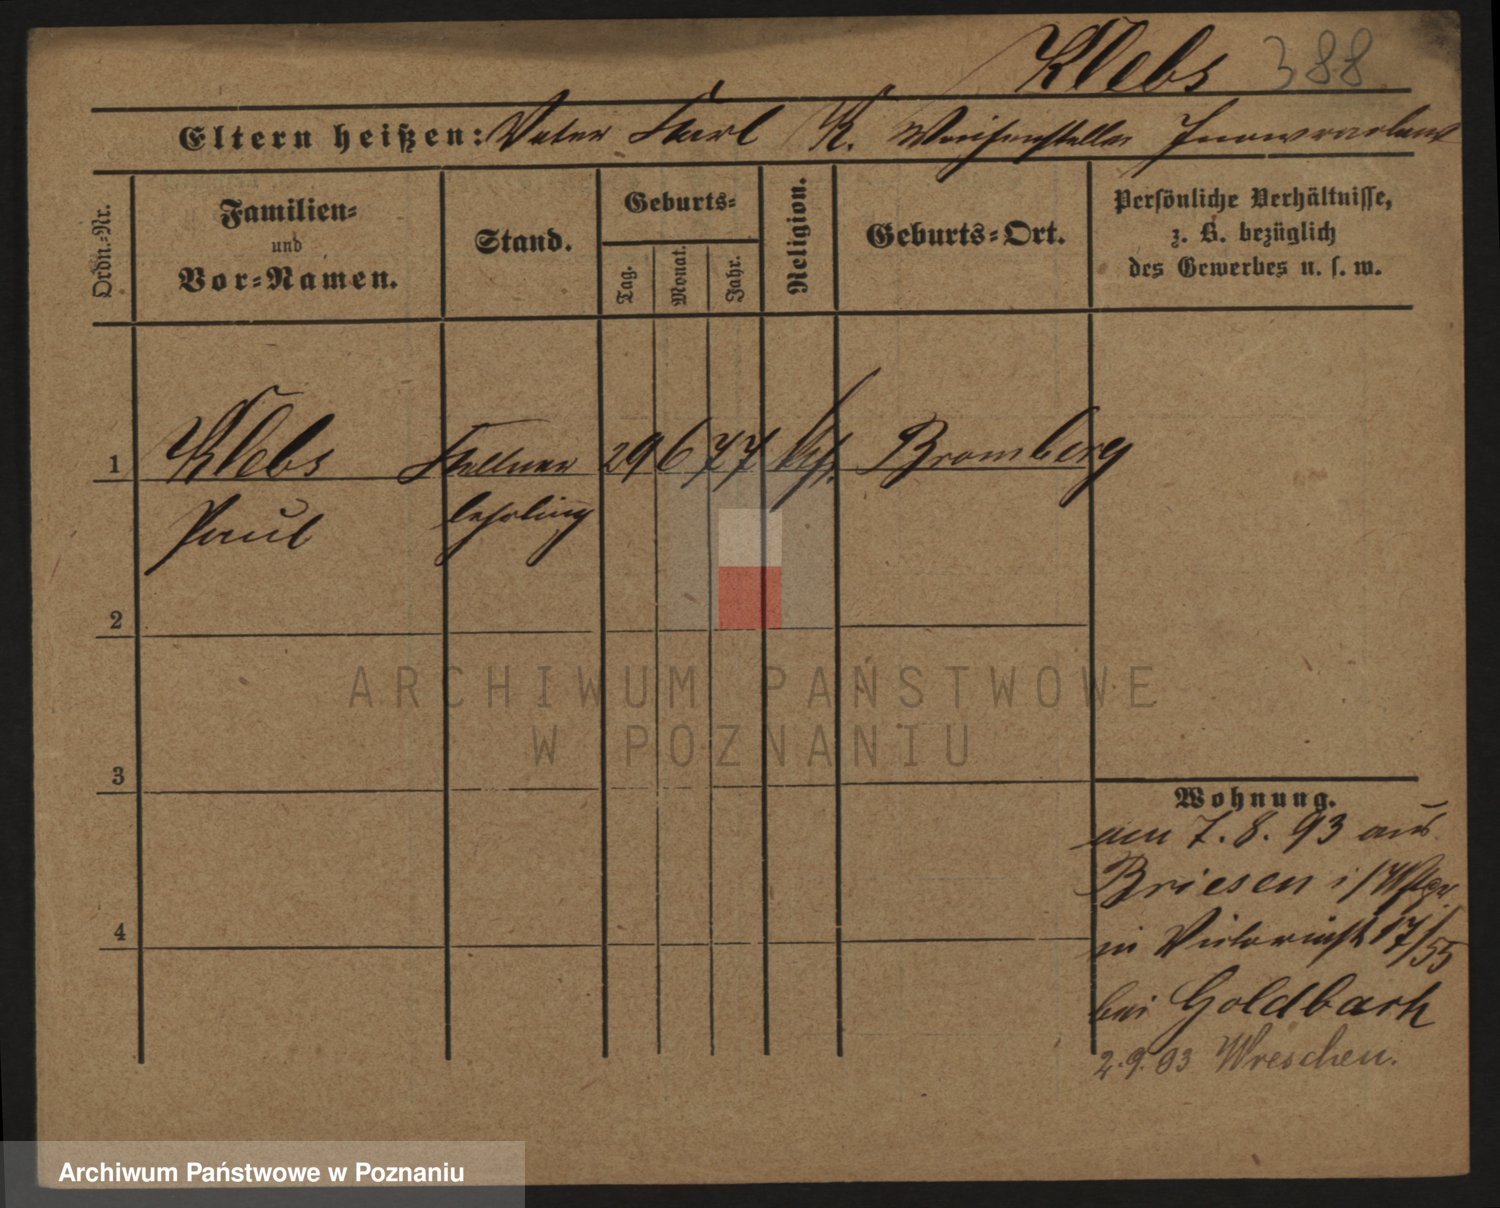 Klebs 388
Eltern heißen: Vater Karl K. Weichensteller Inowrazlaw
Ordn.-Nr.
Familien-
und
Vor-Namen.
Stand.
Geburts-
Tag.
Monat.
Jahr.
Religion.
Geburts-Ort.
Persönliche Verhältnisse,
z. B. bezüglich
des Gewerbes u. s. w.
1 Klebs Kellner 29 6 77 Bromberg
Paul lehrling
2
3
4
Wohnung.
am 7. 8. 93 aus
Briesen i/Wstpr.
in Victoriastr 17/55
bei Goldbach
2. 9. 93 Wreschen.
ARCHIWUM PAŃSTWOWE
W POZNANIU
Archiwum Państwowe w Poznaniu